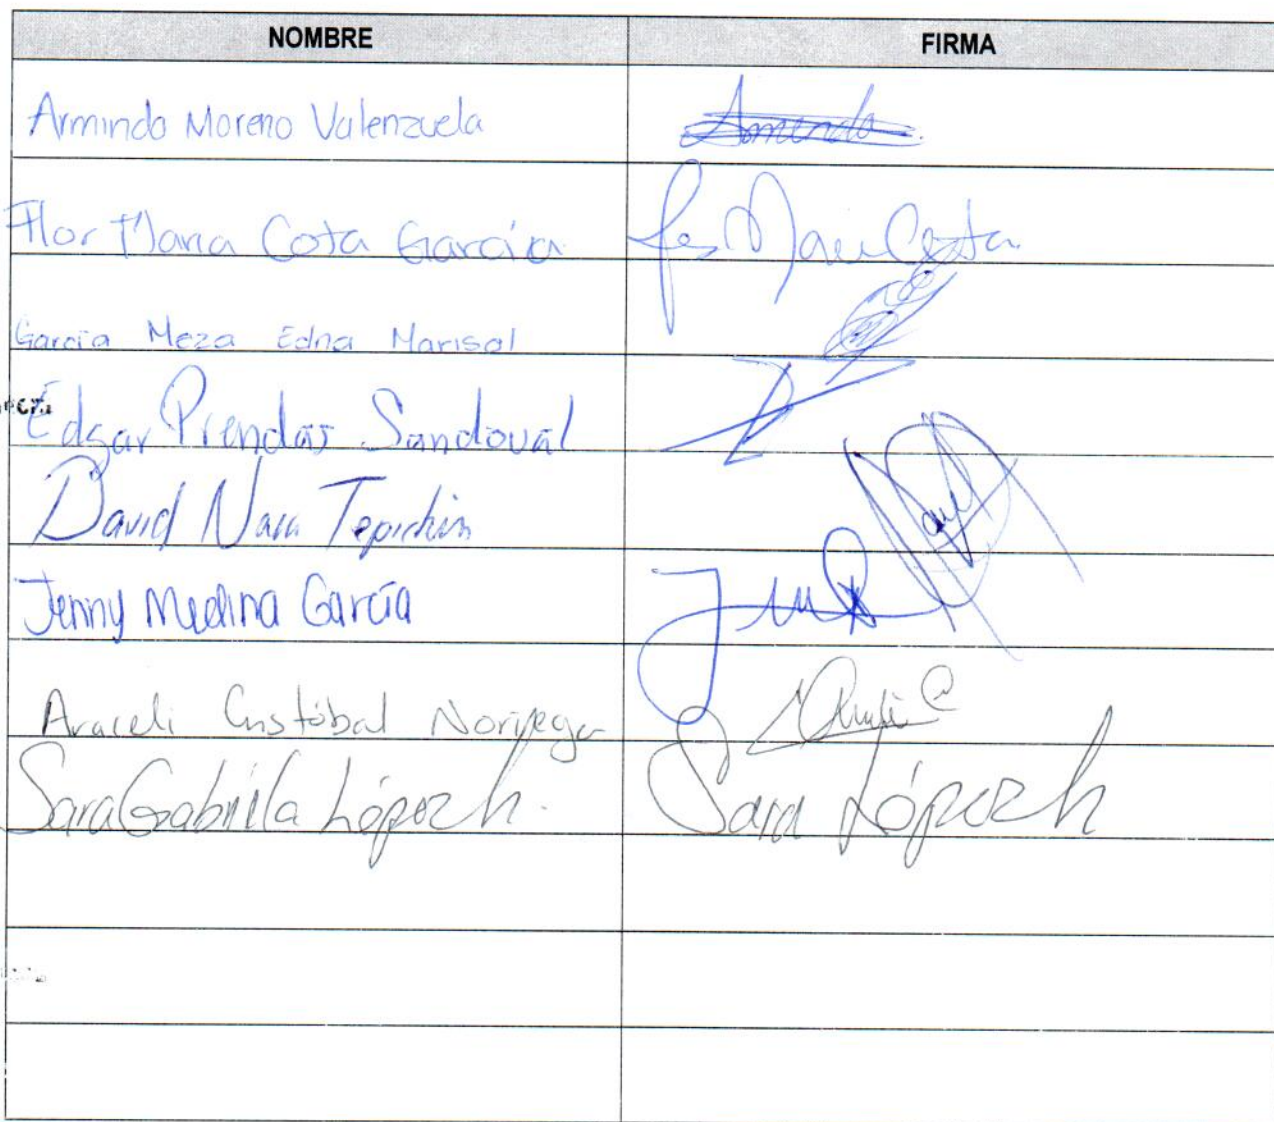 NOMBRE FIRMA
Armindo Moreno Valenzuela Armendo
Flor Maria Cota García Cota
García Meza Edna Marisol
Edgar Prendas Sandoval
David Nara Tepichin
Jenny Medina García
Araceli Cristóbal Noriega
Sara Gabriela López h. Sara López h